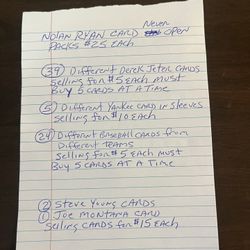 Never
NOLAN RYAN CARD OPEN
PACKS $25 EACH
39 Different Derek Jeter CARDS
Selling for $5 EACH MUST
Buy 5 CARDS AT A TIME
5 Different Yankee CARD IN Sleeves
Selling for $10 EACH
24 Different BASEBALL CARDS from
Different TEAMS
Selling for $5 EACH MUST
Buy 5 CARDS AT A TIME
2 STEVE YOUNG CARDS
1 JOE MONTANA CARD
Selling CARDS for $15 EACH